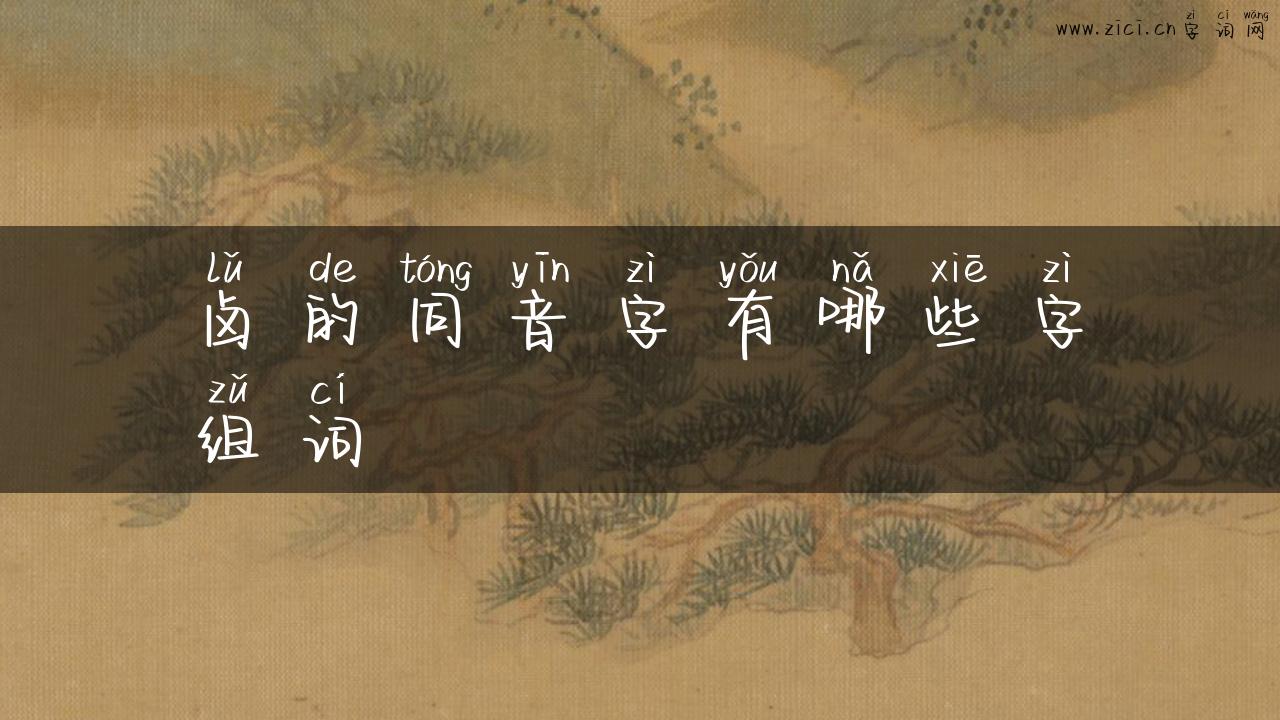 zì cí wǎng
www.zici.cn 字词网
lǔ de tóng yīn zì yǒu nǎ xiē zì
卤的同音字有哪些字
zǔ cí
组词